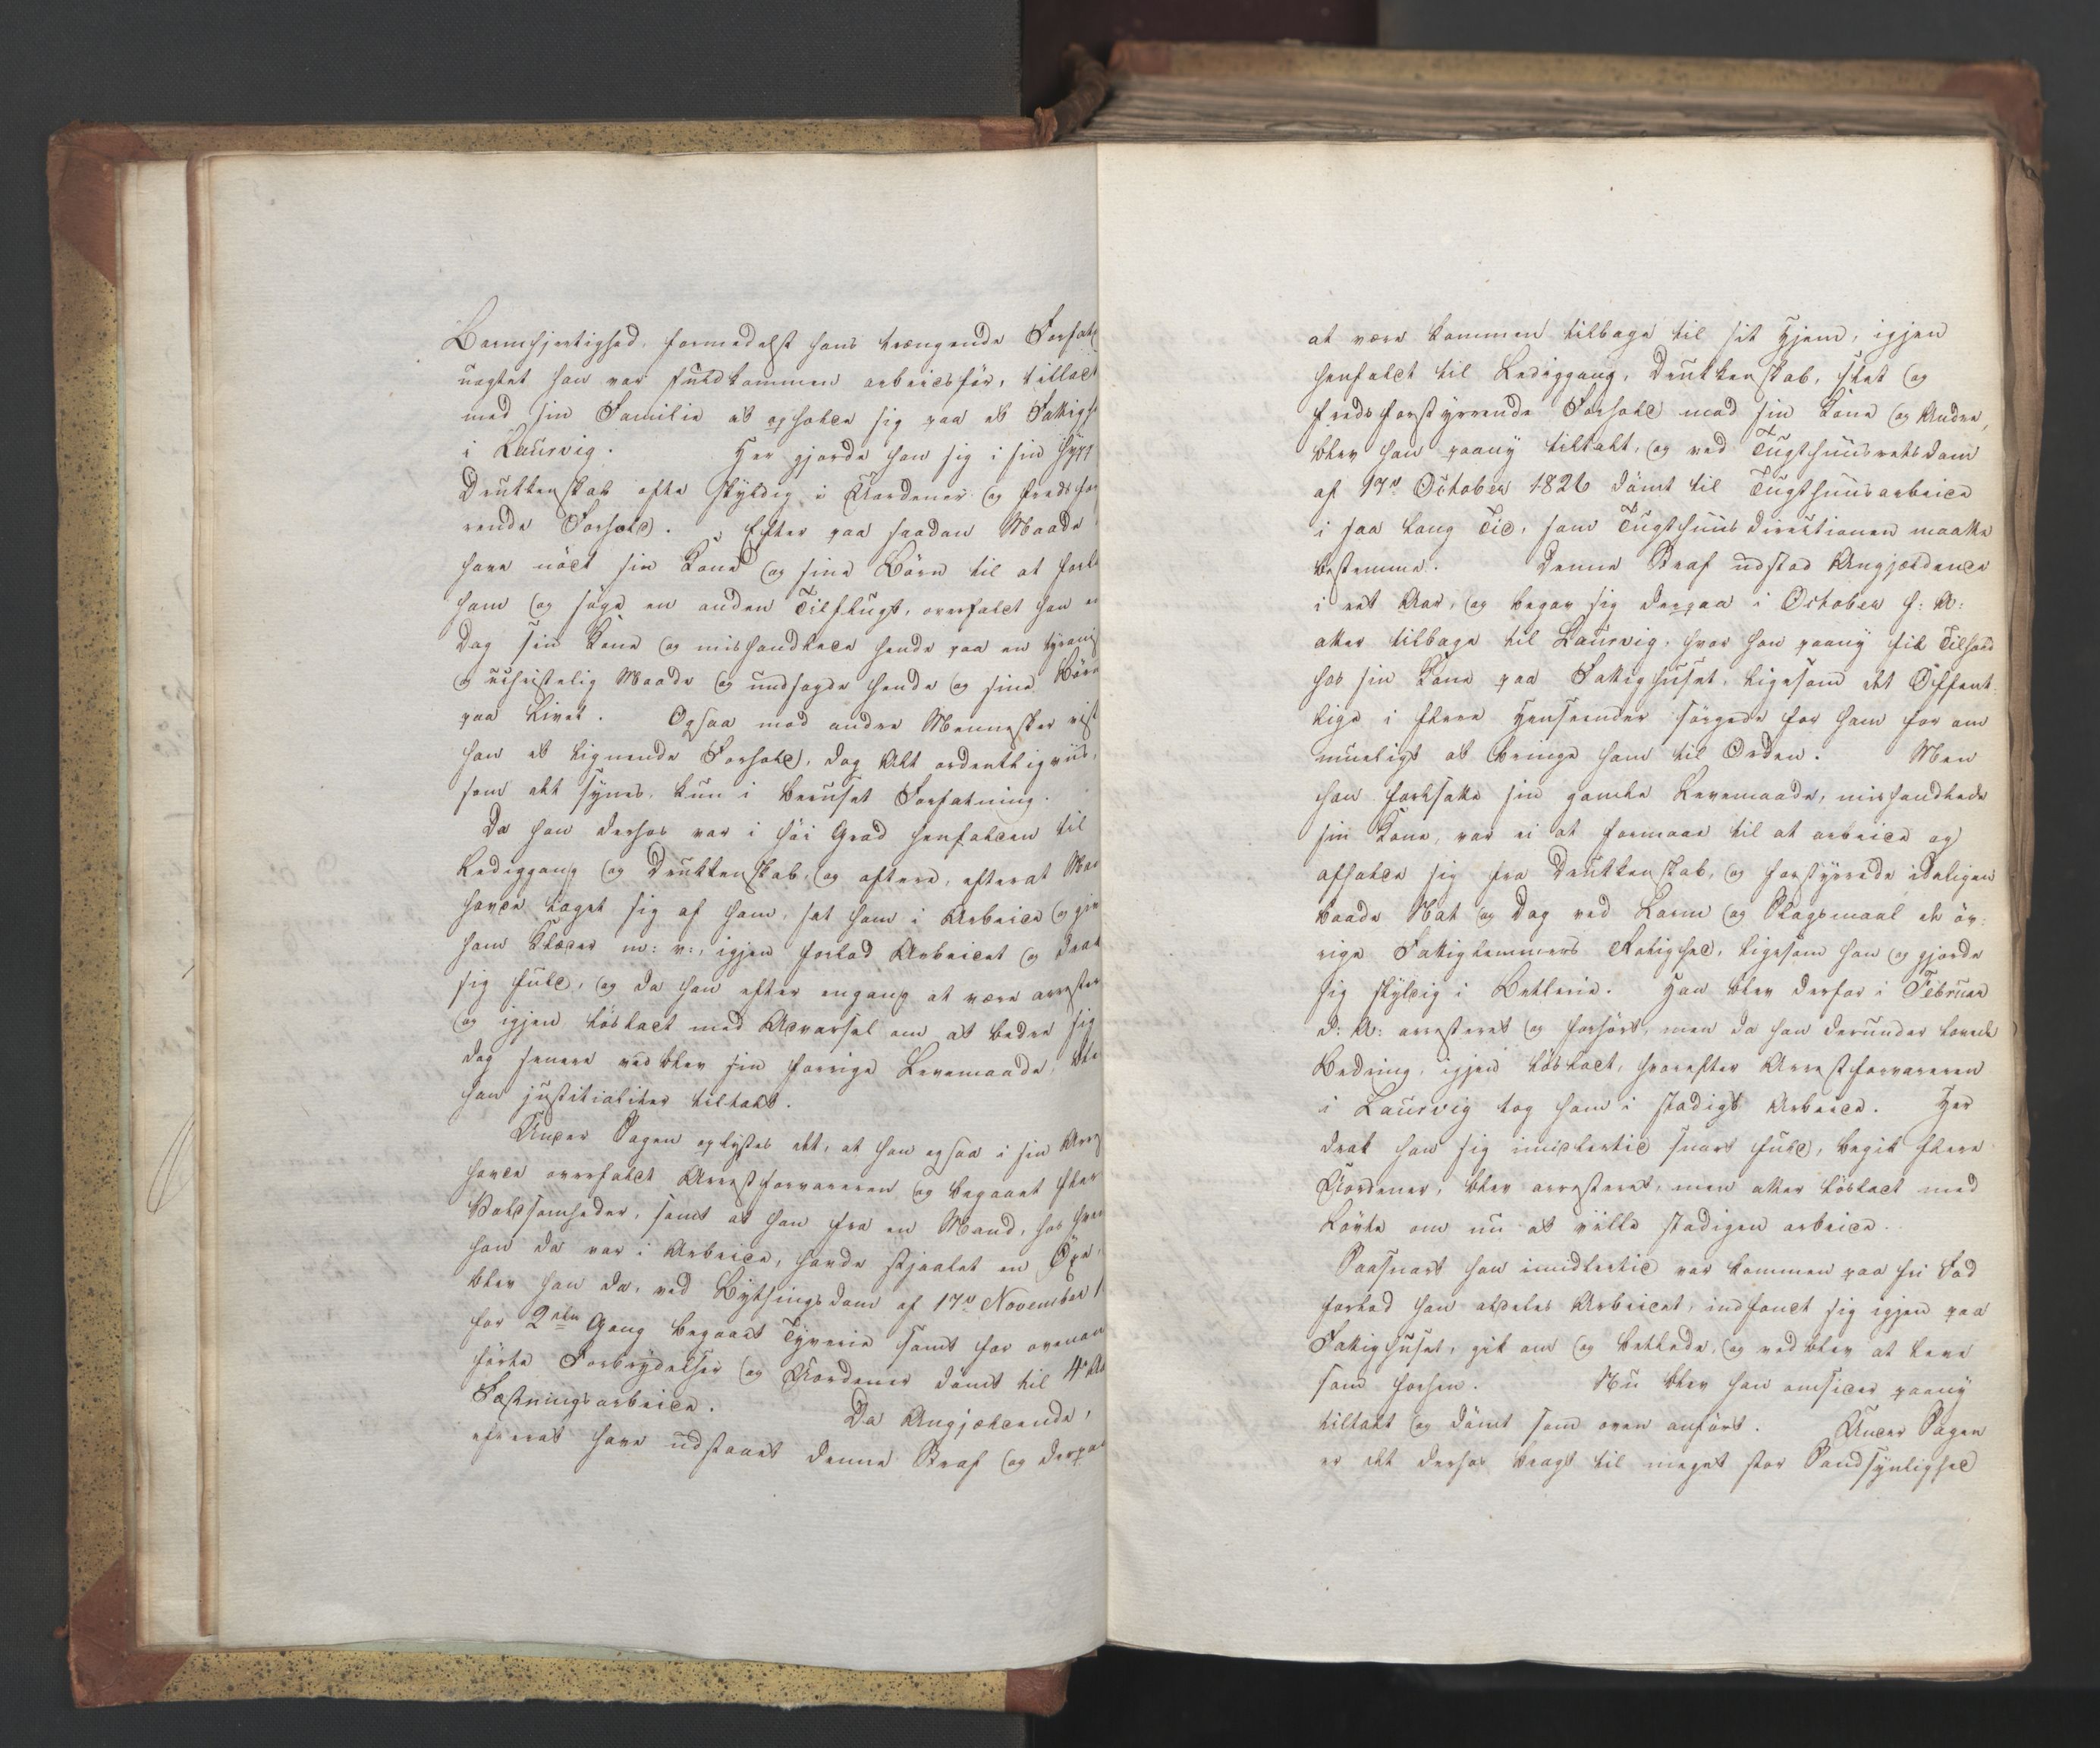 Barmhjertighed, formedelst hans trængende Forfat
uagtet han var fuldkommen arbeidsfør, tilladt
med sin Familie at opholde sig paa et Fattigh
i Laurvig. Her gjorde han sig i sin hypp
Drukkenskab ofte skyldig i Uordener og fredsfor
rende Forhold. Efter paa saadan Maade
have nödt sin Kone og sine Börn til at forla
ham og söge en anden Tilflugt, overfaldt han en
Dag sin Kone og mishandlede hende paa en tyranis
og uchristelig Maade og undsagde hende og sine Börn
paa Livet. Ogsaa mod andre Mennesker vist
han et lignende Forhold, dog Alt ordentligviis,
som det synes, kun i beruset Forfatning.
Da han derhos var i höi Grad henfalden til
Lediggang og Drukkenskab, og oftere, efterat Man
havde taget sig af ham, sat ham i Arbeide og giv
ham Klæder m: v:, igjen forlod Arbeidet og drak
sig fuld, og da han efter engang at være arrester
og igjen lösladt med Advarsel om at bedre sig
dog senere vedblev sin forrige Levemaade, ble
han justitialiter tiltalt.
Under Sagen oplystes det, at han ogsaa i sin Arre
havde overfaldt Arrestforvareren og begaaet fler
Voldsomheder, samt at han fra en Mand, hos hvem
han da var i Arbeide, havde stjaalet en Öxe,
blev han da, ved Bythingsdom af 17de November 1
for 2den Gang begaaet Tyverie samt for ovenan
förte Forbrydelser og Uordener dömt til 4re Aa
Fæstningsarbeide. Da Angjældende,
efterat have udstaaet denne Straf og derpaa
at være kommen tilbage til sit Hjem, igjen
henfaldt til Lediggang, Drukkenskab, slet og
fredsforstyrrende Forhold mod sin Kone og Andre,
blev han paany tiltalt, og ved Tugthuusretsdom
af 17de October 1826 dömt til Tugthuusarbeide
i saa lang Tid, som Tugthuusdirectionen maatte
bestemme. Denne Straf udstod Angjældende
i eet Aar, og begav sig derpaa i October f: A:
atter tilbage til Laurvig, hvor han paany fik Tilhold
hos sin Kone paa Fattighuset, ligesom det Offent-
lige i flere Henseender sörgede for ham for om
mueligt at bringe ham til Orden. Men
han fortsatte sin gamle Levemaade, mishandlede
sin Kone, var ei at formaae til at arbeide og
afholde sig fra Drukkenskab, og forstyrrede ideligen
baade Nat og Dag ved Larm og Slagsmaal de öv-
rige Fattiglemmers Rolighed, ligesom han og gjorde
sig skyldig i Betlerie. Han blev derfor i Februar
d: A: arresteret og forhört, men da han derunder lovede
Bedring, igjen lösladt, hvorefter Arrestforvareren
i Laurvig tog ham i stadigt Arbeide. Her
drak han sig imidlertid snart fuld, begik flere
Uordener, blev arresteret, men atter lösladt med
Löfte om nu at ville stadigen arbeide.
Saasnart han imidlertid var kommen paa fri Fod
forlod han aldeles Arbeidet, indfandt sig igjen paa
Fattighuset, gik om og betlede, og vedblev at leve
som forhen. Nu blev han omsider paany
tiltalt og dömt som oven anfört. Under Sagen
er det derhos bragt til meget stor Sandsynlighed